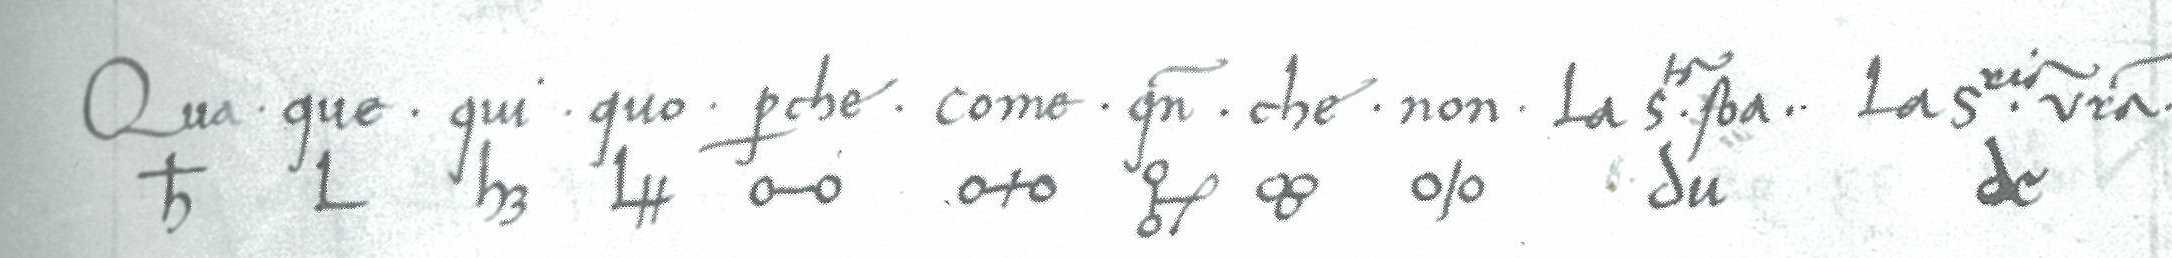 Qua · que · qui · quo · pche · come · qñ · che · non · La S. · La S. vrã.
ħ L h3 L# o–o o+o o/o du dc